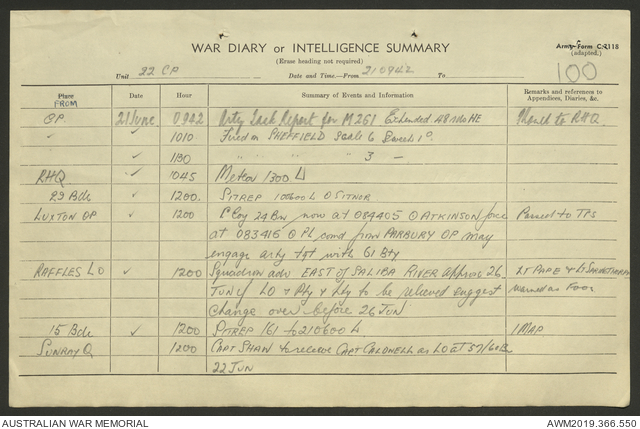 WAR DIARY or INTELLIGENCE SUMMARY
(Erase heading not required)
Army Form C.2118
(adapted.)
100
Unit 22 CP Date and Time.—From 210942 To
Place Date Hour Summary of Events and Information Remarks and references to Appendices, Diaries, &c.
FROM
CP 21 June 0942 Arty Task Report for M261 Extended 48 rds HE Phoned to RHQ
✓ ✓ 1010 Fired on SHEFFIELD Scale 6 1°
✓ 1130 " " " 3 —
RHQ ✓ 1045 Meteor 1300 L
29 Bde ✓ 1200. SITREP 100600 L O SITNOR
LUXTON OP ✓ 1200 C Coy 24 Bn now at 084405 O ATKINSON force Passed to TPS
at 083416 O PL comd from PARBURY OP may
engage arty tgt with 61 Bty
RAFFLES LO ✓ 1200 Squadron adv EAST of SALIBA RIVER approx 26 LT PAPE & LT
JUN LO & Pty & to be relieved suggest warned as FOOs
change over before 26 JUN
15 Bde ✓ 1200 SITREP 161 to 210600 L 1 MAP
SUNRAY Q 1200 CAPT SHAW to relieve CAPT CALDWELL as LO at 57/60 Bn
22 JUN
AUSTRALIAN WAR MEMORIAL AWM2019.366.550